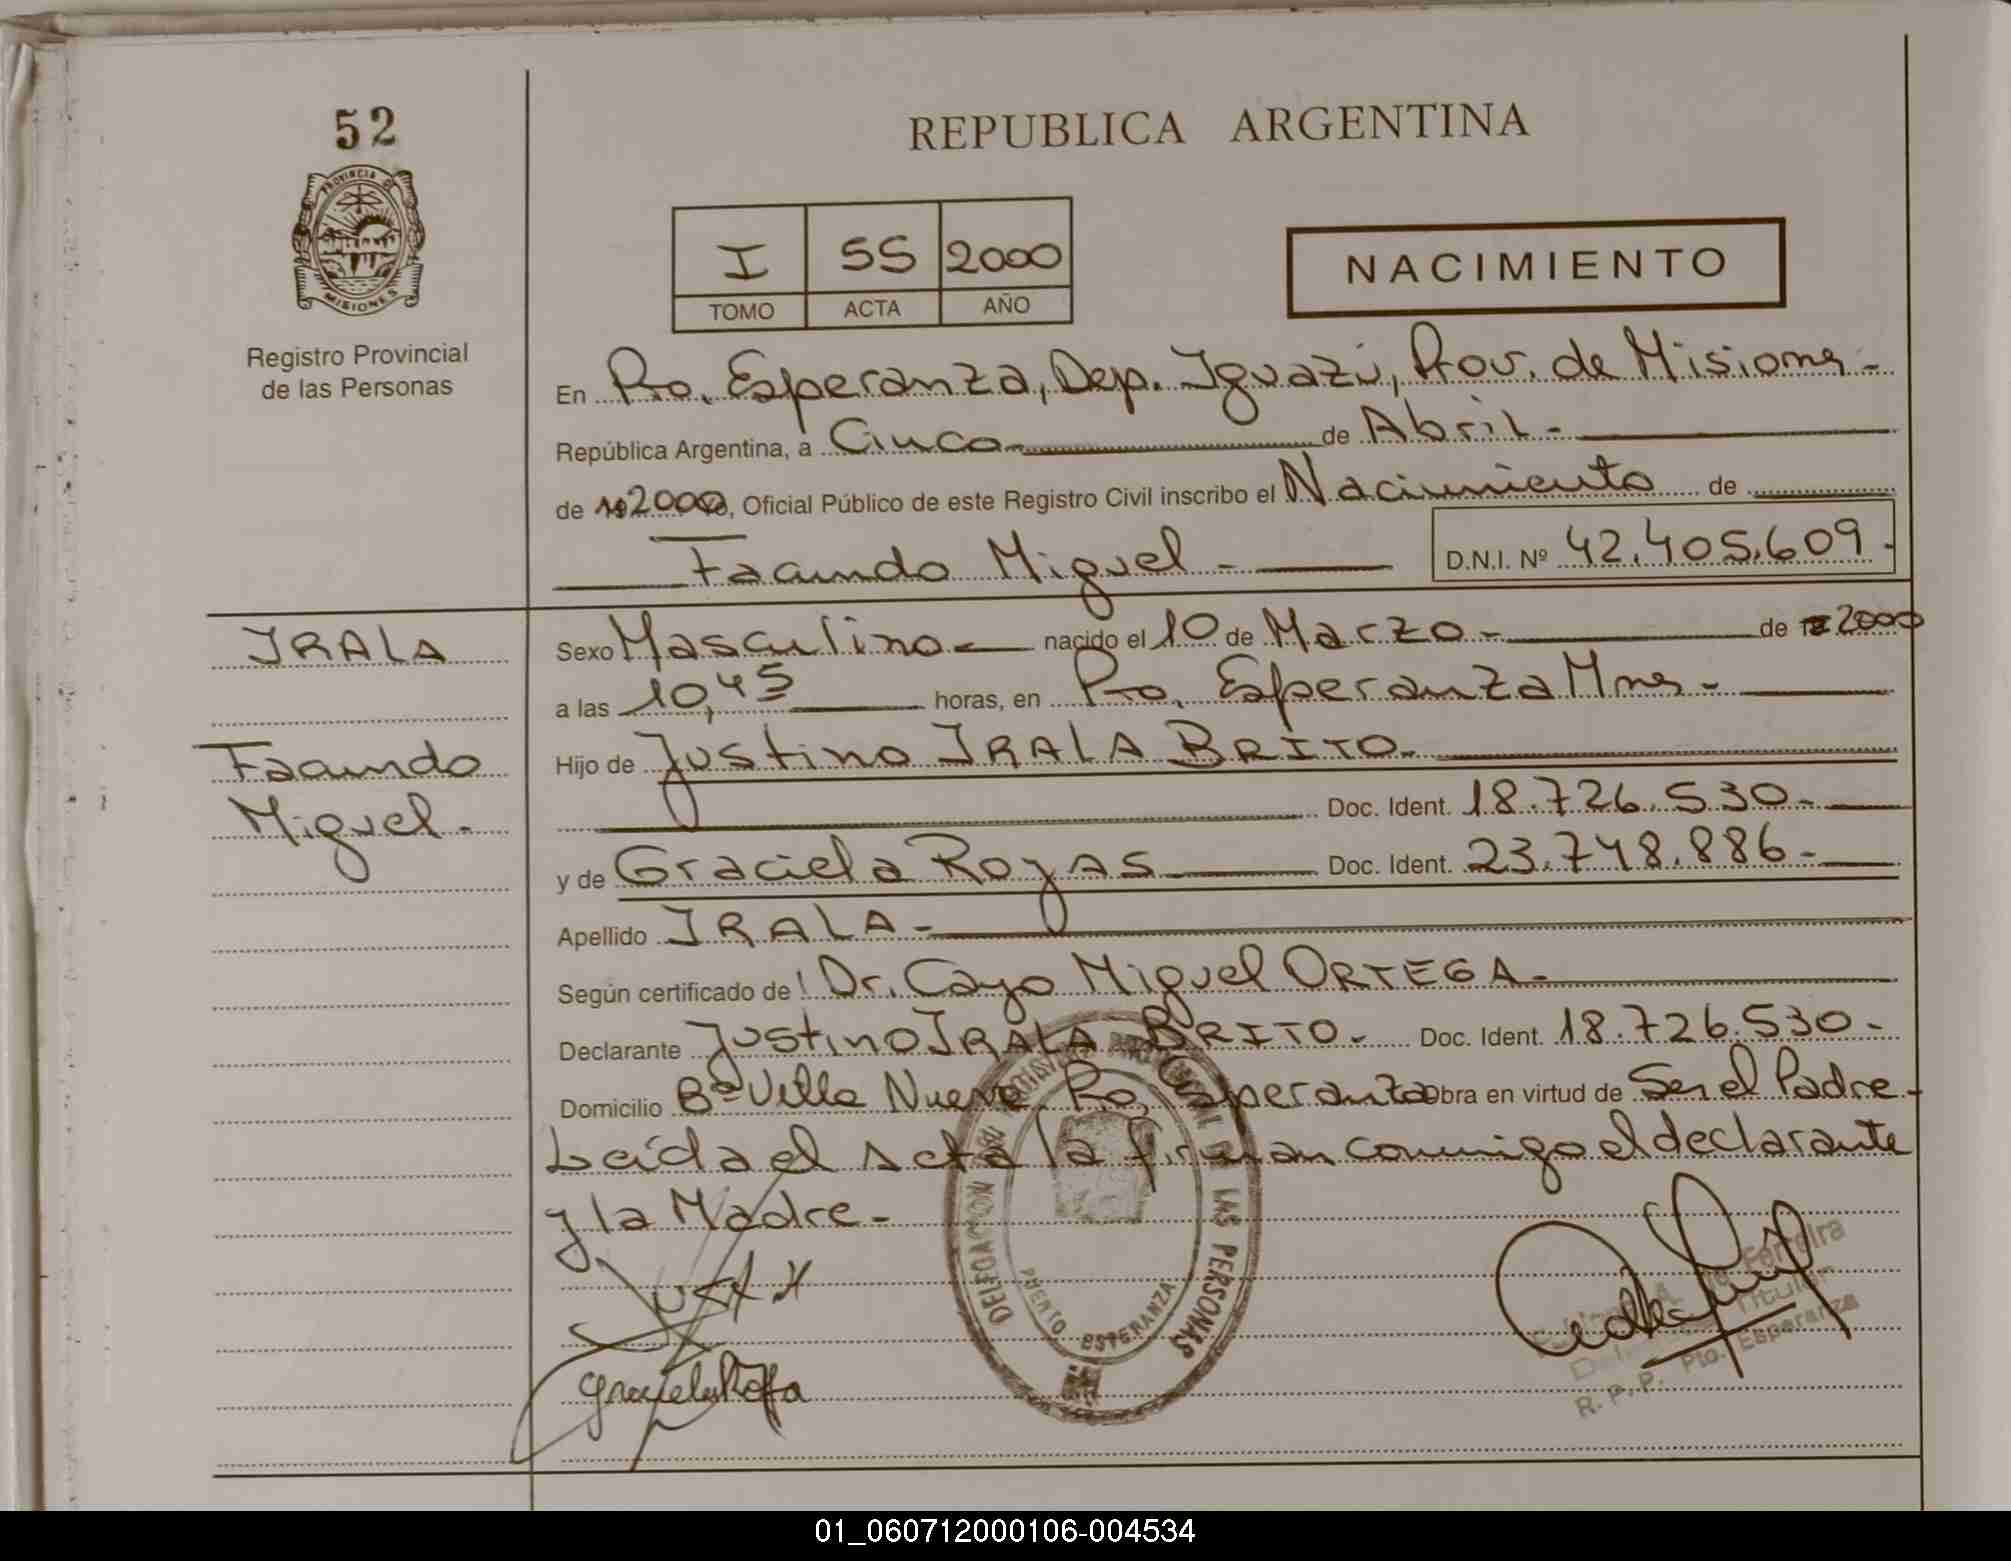 52
REPUBLICA ARGENTINA
PROVINCIA DE
MISIONES
Registro Provincial
de las Personas
I 55 2000
TOMO ACTA AÑO
NACIMIENTO
En Pto. Esperanza, Dep. Iguazú, Prov. de Misiones -
República Argentina, a Cinco de Abril -
de 2000, Oficial Público de este Registro Civil inscribo el Nacimiento de
Facundo Miguel - D.N.I. Nº 42.405.609 -
IRALA
Facundo
Miguel -
Sexo Masculino - nacido el 10 de Marzo - de 2000
a las 10,45 horas, en Pto. Esperanza Mnes -
Hijo de Justino IRALA BRITO -
Doc. Ident. 18.726.530 -
y de Graciela ROJAS Doc. Ident. 23.748.886 -
Apellido IRALA -
Según certificado de: Dr. Cayo Miguel ORTEGA -
Declarante Justino IRALA BRITO - Doc. Ident. 18.726.530 -
Domicilio Bº Villa Nueva Pto. Esperanza Obra en virtud de Ser el Padre -
Leída el acta la firman conmigo el declarante
y la Madre -
DELEGACION REGISTRO PROVINCIAL DE LAS PERSONAS
PUERTO ESPERANZA
Ferreira
Titular
R. P. P. Pto. Esperanza
01_060712000106-004534